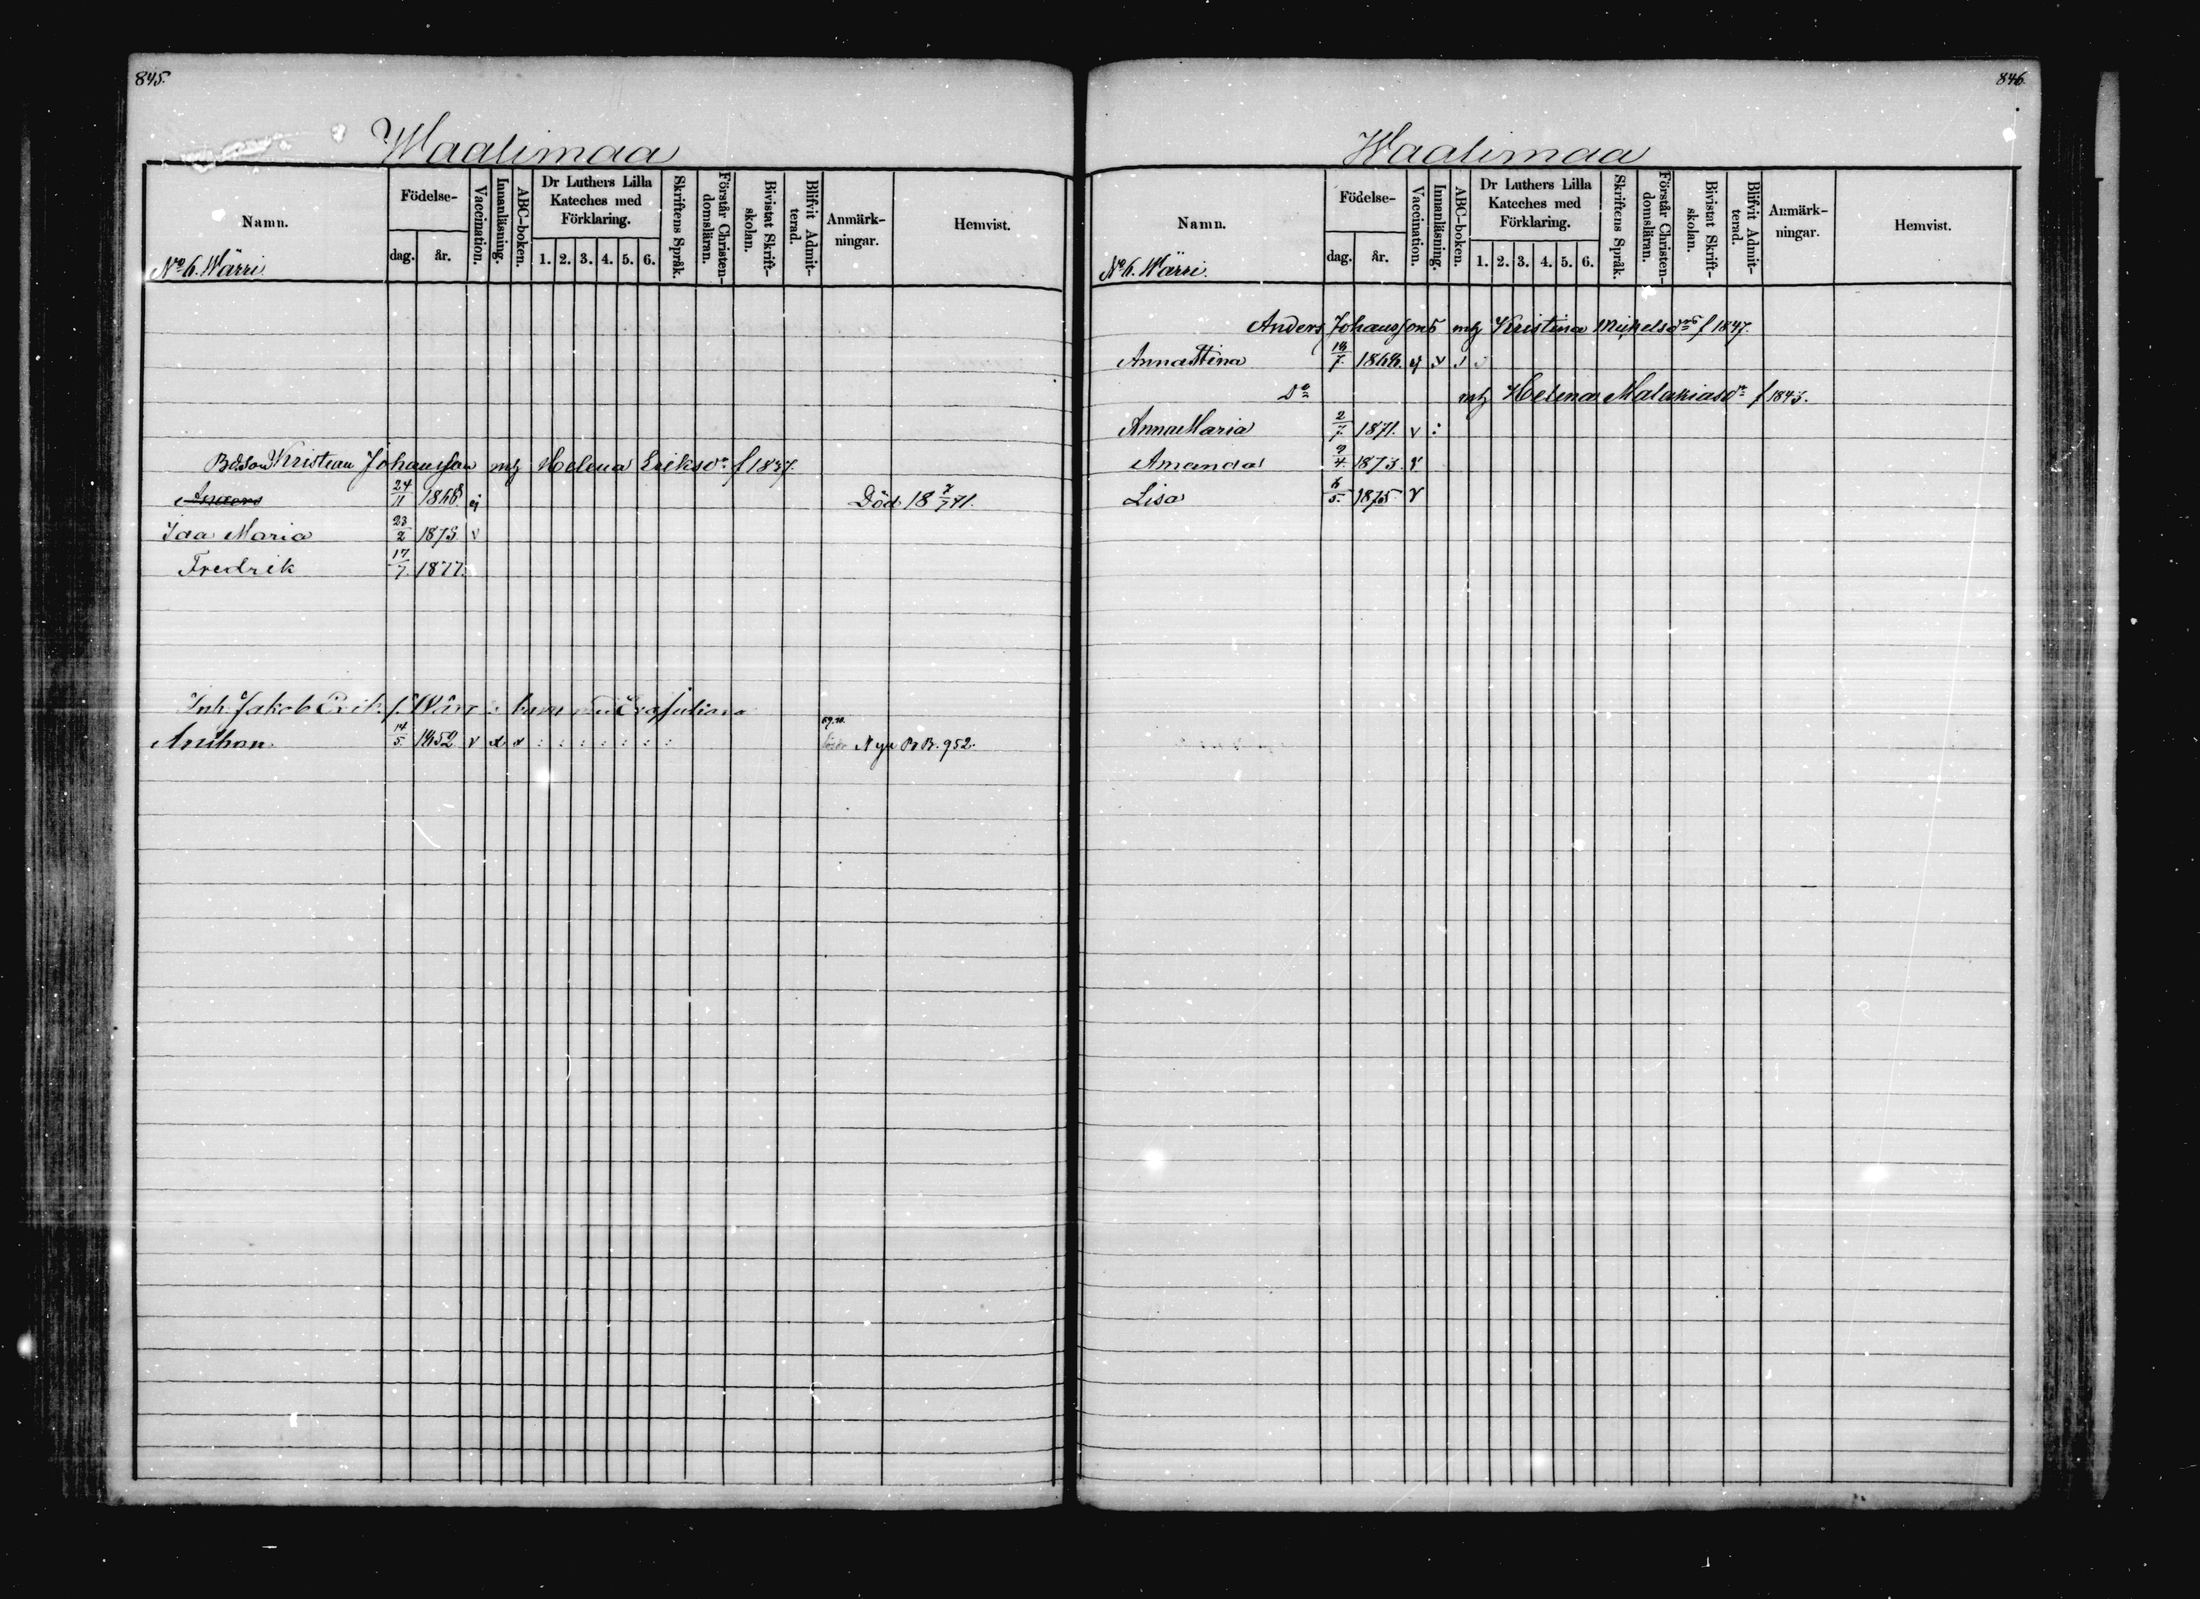 845.
Waalimaa
Namn.
Födelse-
dag. år.
Vaccination.
Innanläsning.
ABC-boken.
Dr Luthers Lilla Kateches med Förklaring.
1. 2. 3. 4. 5. 6.
Skriftens Språk.
Förstår Christen-domsläran.
Bivistat Skrift-skolan.
Blifvit Admit-terad.
Anmärk-ningar.
Hemvist.
No 6. Wärri
Kristian Johansson mh Helena Eriksdr f 1847.
Anders 24/11 1868 ej Död 18 7/7 71.
Ida Maria 23/2 1875 v
Fredrik 17/7 1877.
Inh. Jakob Erik
14/5 1852 v x x : : : : : : : Nya 952.
846.
Waalimaa
Namn.
Födelse-
dag. år.
Vaccination.
Innanläsning.
ABC-boken.
Dr Luthers Lilla Kateches med Förklaring.
1. 2. 3. 4. 5. 6.
Skriftens Språk.
Förstår Christen-domsläran.
Bivistat Skrift-skolan.
Blifvit Admit-terad.
Anmärk-ningar.
Hemvist.
No 6. Wärri.
Anders Johanssons mh Kristina Mickelsdr f 1847.
Anna Stina 18/7 1868. ej v
Do mh Helena Malakiasdr f 1845.
Anna Maria 2/7 1871. v :
Amanda 1873. v
Lisa 1875 v